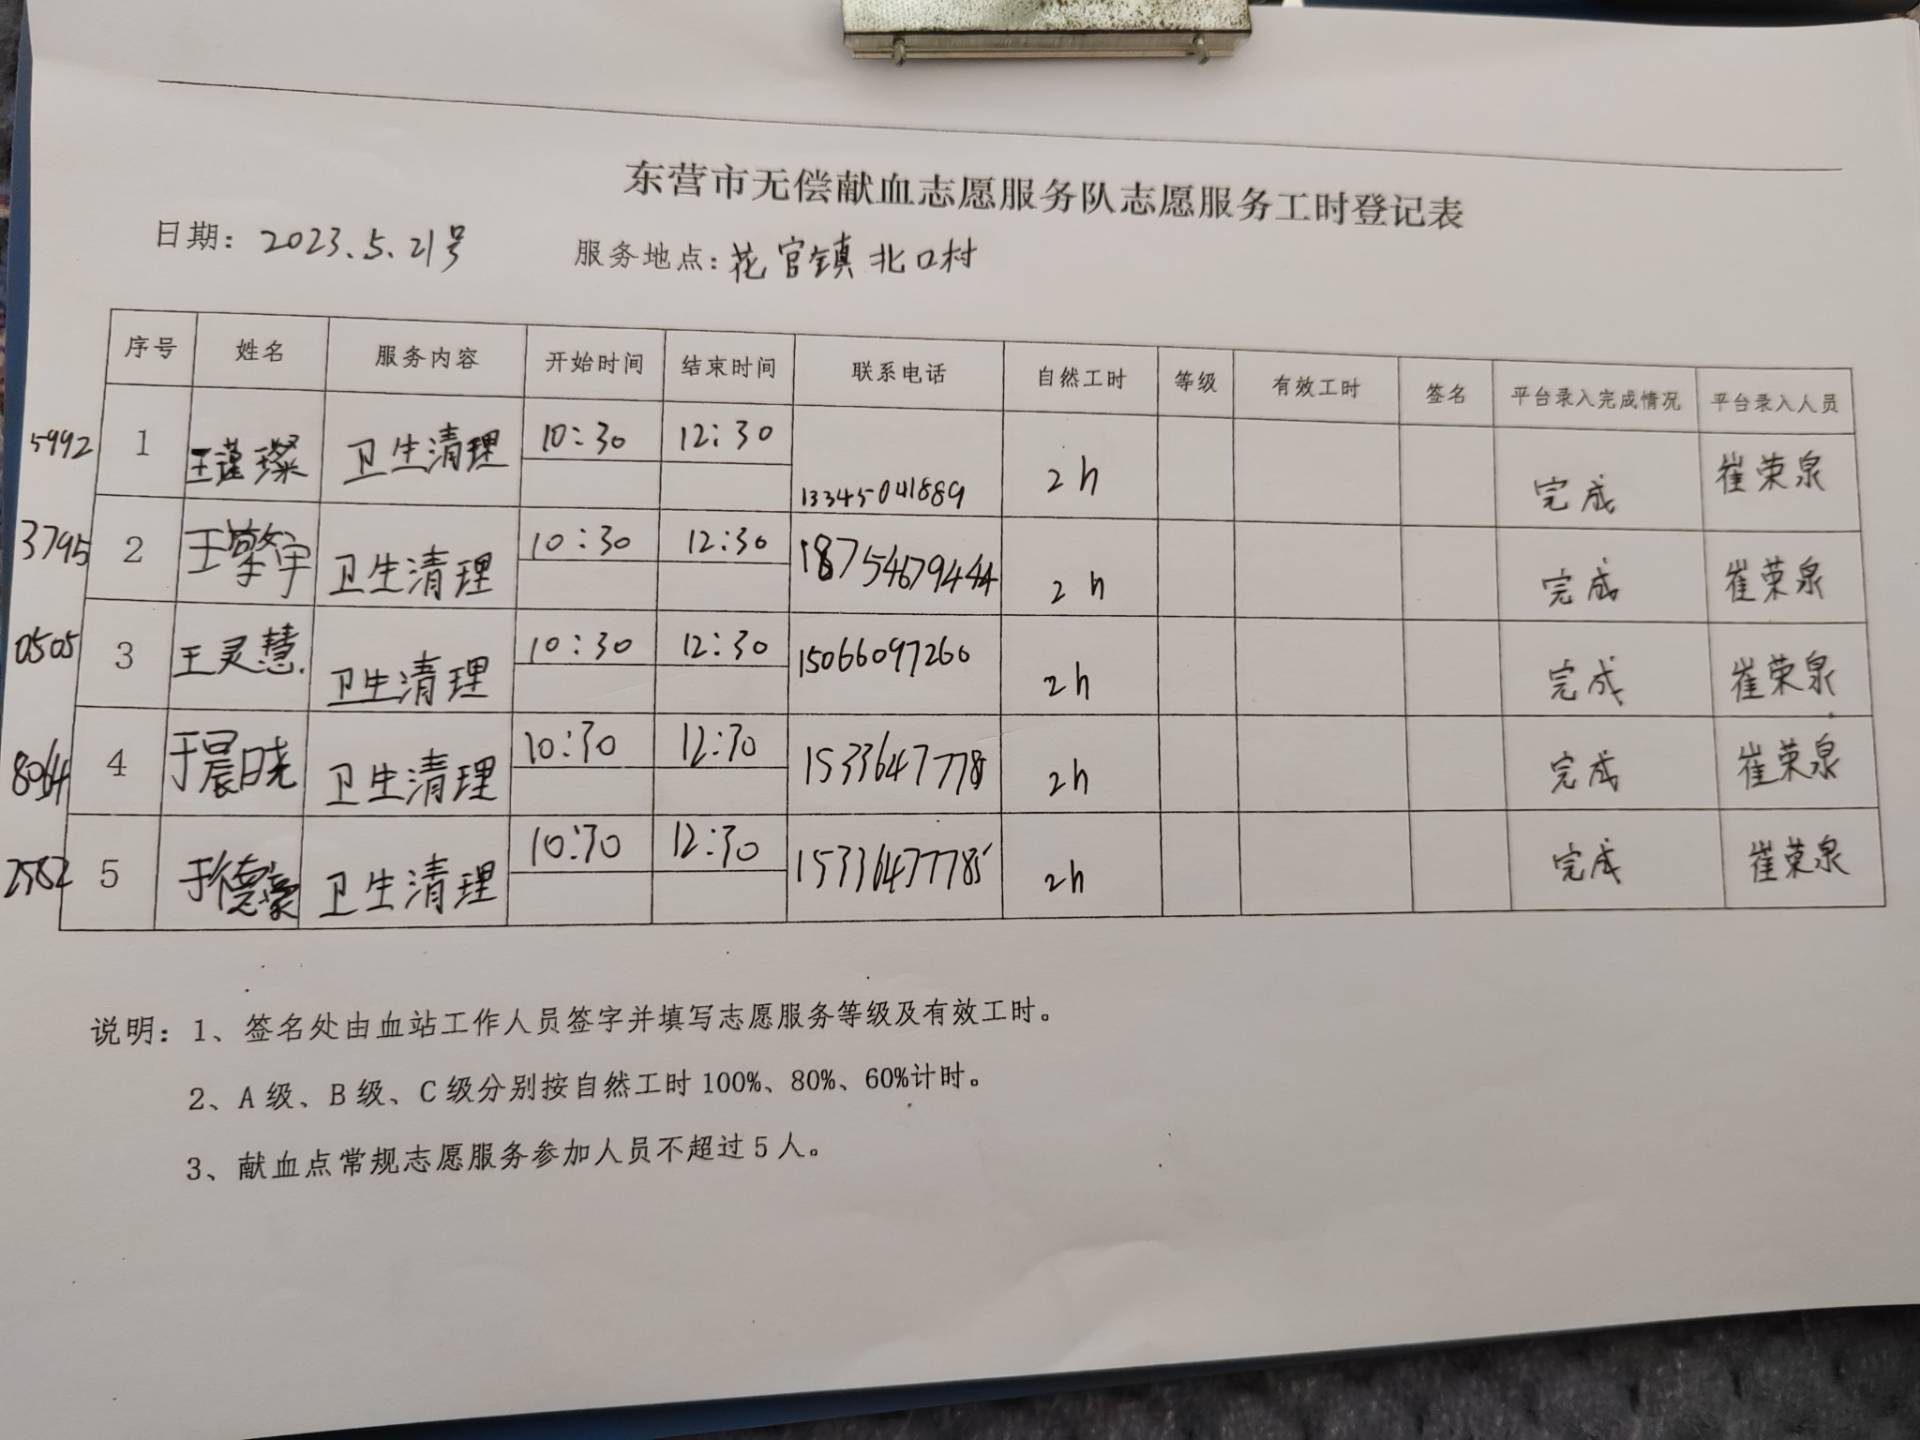 东营市无偿献血志愿服务队志愿服务工时登记表
日期: 2023.5.21号 服务地点: 花官镇北口村
序号 姓名 服务内容 开始时间 结束时间 联系电话 自然工时 等级 有效工时 签名 平台录入完成情况 平台录入人员
5992 1 王谨璨 卫生清理 10:30 12:30 13345041889 2h 完成 崔荣泉
3795 2 王擎宇 卫生清理 10:30 12:30 18754679444 2h 完成 崔荣泉
0505 3 王灵慧 卫生清理 10:30 12:30 15066097260 2h 完成 崔荣泉
8064 4 于晨晓 卫生清理 10:30 12:30 2h 完成 崔荣泉
5 于德豪 卫生清理 10:30 12:30 15336477785 2h 完成 崔荣泉
说明: 1、签名处由血站工作人员签字并填写志愿服务等级及有效工时。
2、A级、B级、C级分别按自然工时100%、80%、60%计时。
3、献血点常规志愿服务参加人员不超过5人。